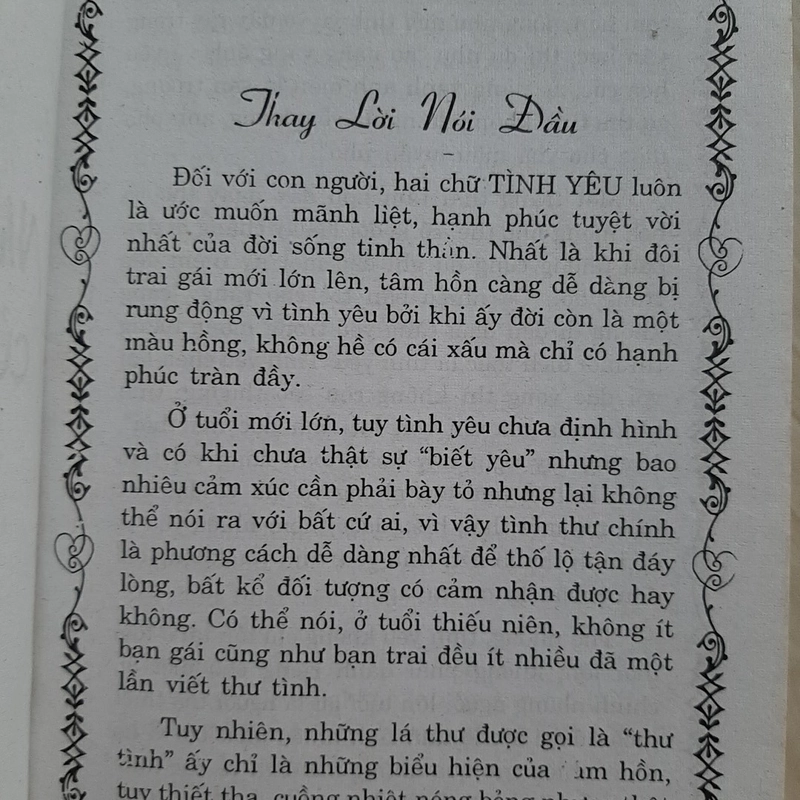 Thay Lời Nói Đầu
Đối với con người, hai chữ TÌNH YÊU luôn
là ước muốn mãnh liệt, hạnh phúc tuyệt vời
nhất của đời sống tinh thần. Nhất là khi đôi
trai gái mới lớn lên, tâm hồn càng dễ dàng bị
rung động vì tình yêu bởi khi ấy đời còn là một
màu hồng, không hề có cái xấu mà chỉ có hạnh
phúc tràn đầy.
Ở tuổi mới lớn, tuy tình yêu chưa định hình
và có khi chưa thật sự “biết yêu” nhưng bao
nhiêu cảm xúc cần phải bày tỏ nhưng lại không
thể nói ra với bất cứ ai, vì vậy tình thư chính
là phương cách dễ dàng nhất để thố lộ tận đáy
lòng, bất kể đối tượng có cảm nhận được hay
không. Có thể nói, ở tuổi thiếu niên, không ít
bạn gái cũng như bạn trai đều ít nhiều đã một
lần viết thư tình.
Tuy nhiên, những lá thư được gọi là “thư
tình” ấy chỉ là những biểu hiện của tâm hồn,
tuy thiết tha, cuồng nhiệt nóng bỏng